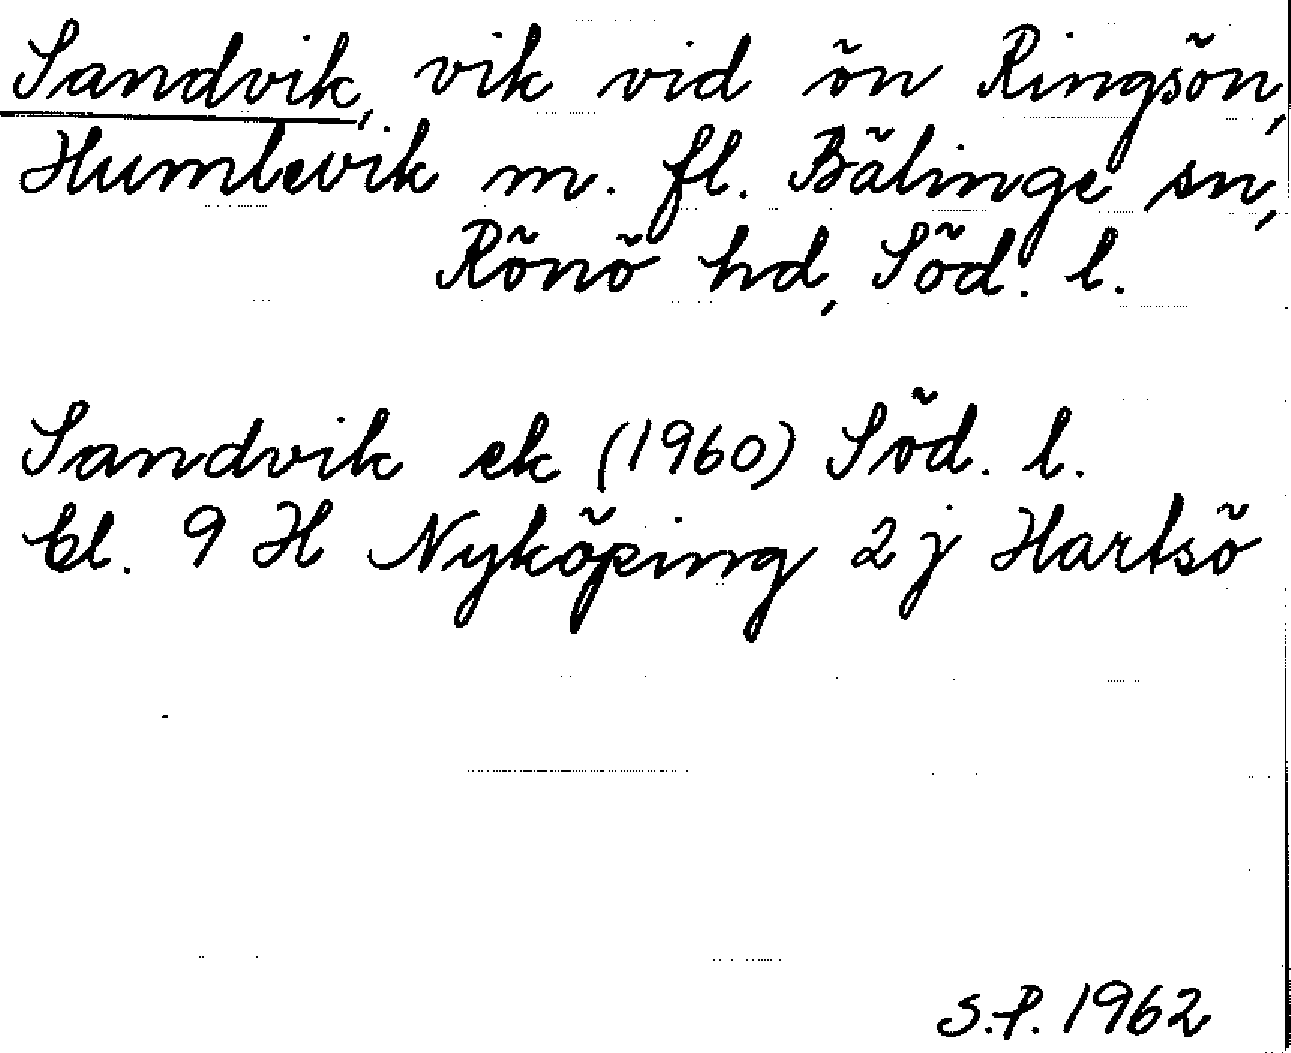 Sandvik, vik vid ön Ringsön,
Humlevik m. fl. Bälinge sn,
Rönö hd, Söd. l.
Sandvik ek (1960) Söd. l.
bl. 9 H Nyköping 2 j Hartsö
S.P. 1962